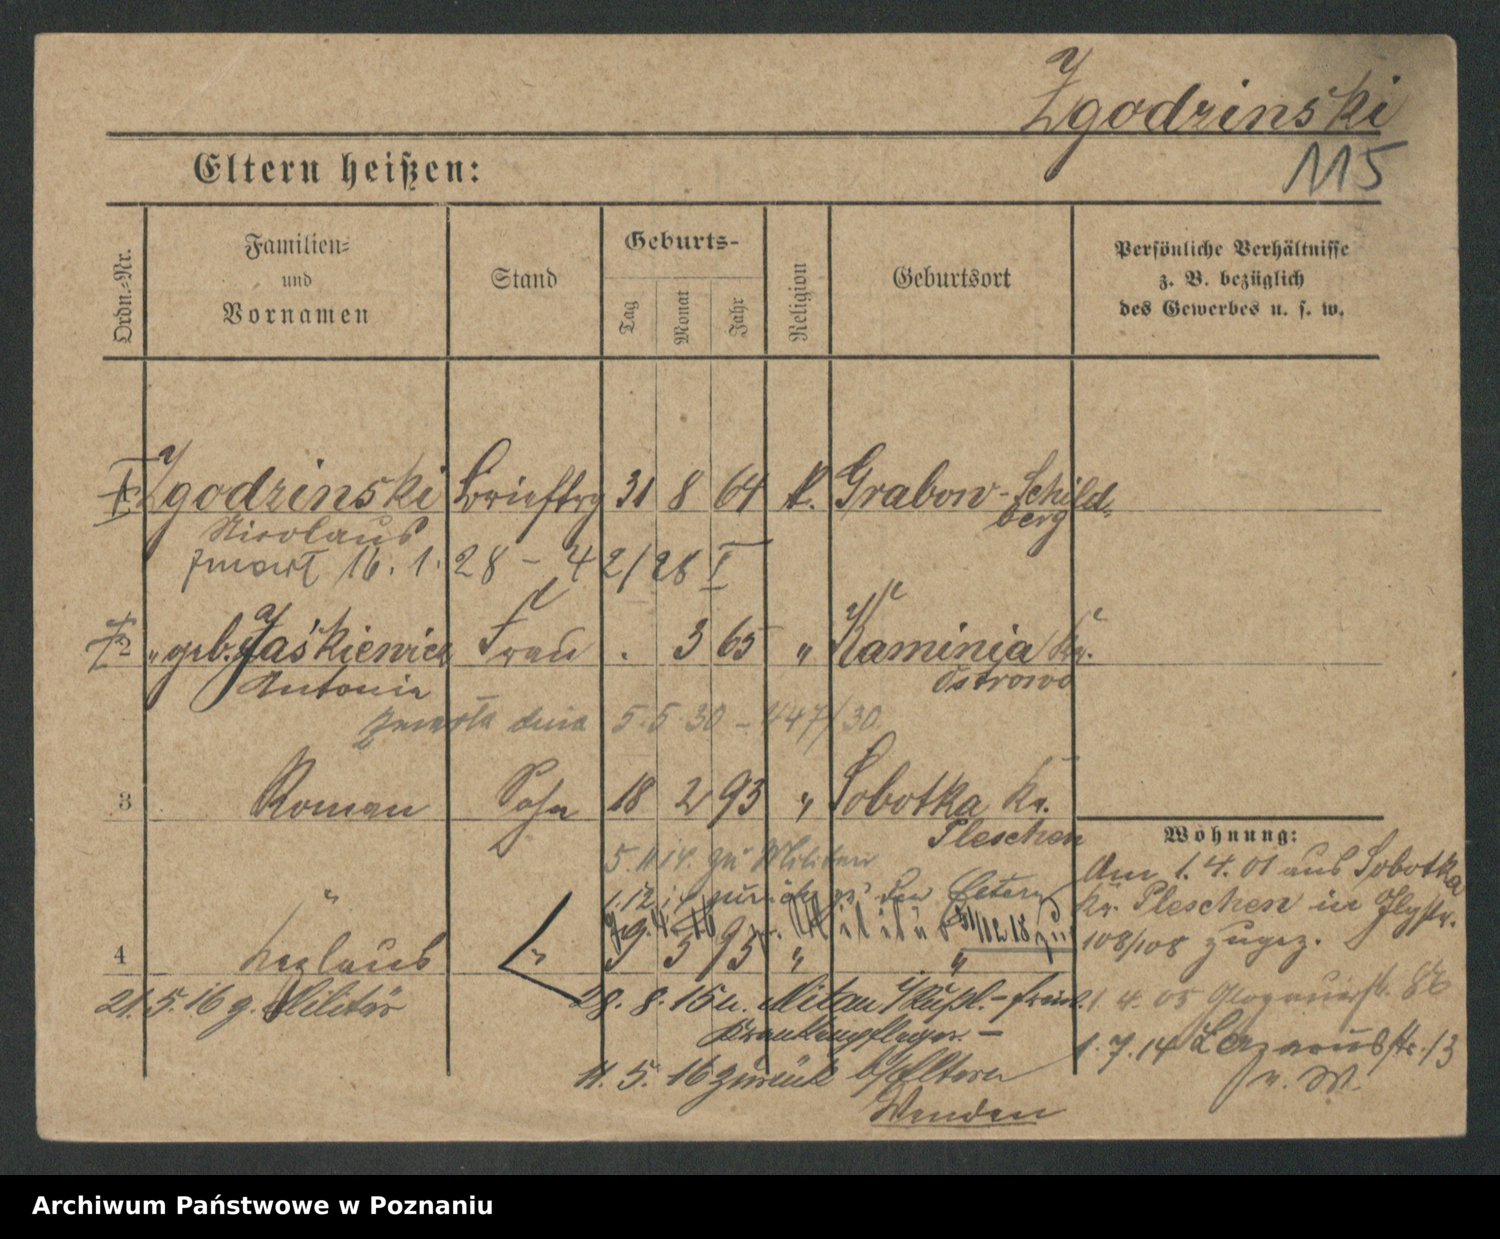 Zgodzinski
115
Eltern heißen:
Ordn.-Nr.
Familien-
und
Vornamen
Stand
Geburts-
Tag
Monat
Jahr
Religion
Geburtsort
Persönliche Verhältnisse
z. B. bezüglich
des Gewerbes u. s. w.
Zgodzinski Brieftrg 31 8 64 k. Grabow - Schild-
berg
Nicolaus
zmarł 16. 1. 28 - 42/28 I
2 " geb. Jaśkiewicz Frau . 3 65 " Kaminia Kr.
Ostrowo
Antonie
zmarła dnia 5.5.30 - 447/30
3 Roman Sohn 18 2 93 " Sobotka Kr.
Pleschen
5.11.14. zu Militär
1.12.14 zurück den Eltern
31/12 18 zu
4 " 9 5 95 " "
21.5.16 g. Militär
28. 8. 15 n. Mitau
Krankenpfleger -
11. 5. 16 zurück b/Eltern
Wenden
Wohnung:
Am 1. 4. 01 aus Sobotka
Kr. Pleschen in
108/108 zugez.
1. 4. 05 Glogauerstr. 86
1. 7. 14 Lazarusstr. 13
v. W.
Archiwum Państwowe w Poznaniu